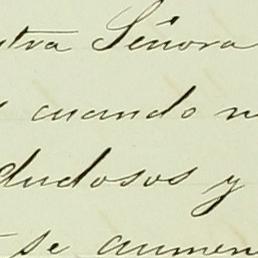 stra Señora
cuando
dudosos y
se aumen